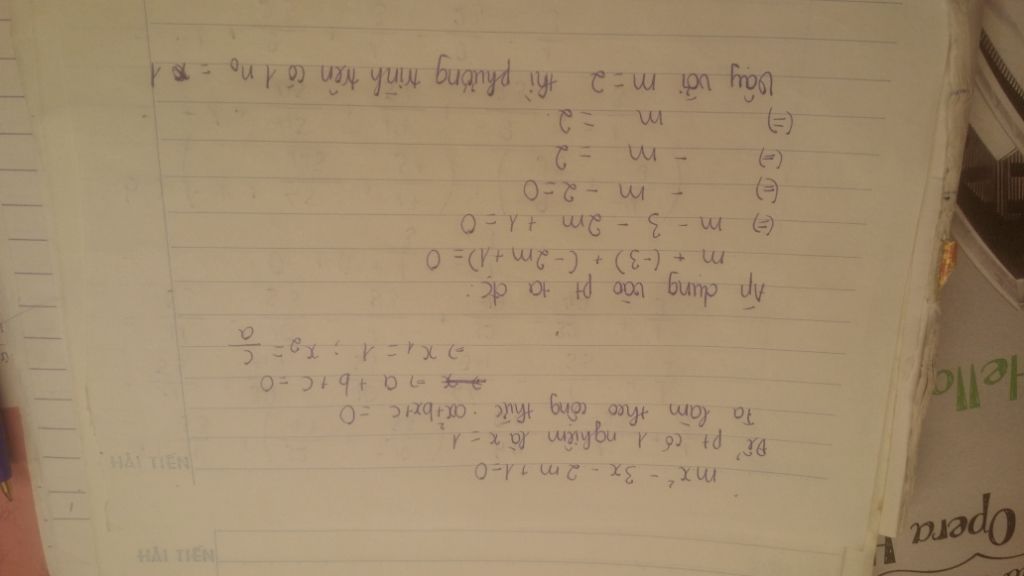 HẢI TIẾN
mx² - 3x - 2m + 1 = 0
Để pt có 1 nghiệm là x = 1
HẢI TIẾN
Ta làm theo công thức: ax²+bx+c = 0
=> a + b + c = 0
=> x₁ = 1 ; x₂ = c/a
Áp dụng vào pt ta đc:
m + (-3) + (-2m+1) = 0
(=) m - 3 - 2m + 1 = 0
(=) - m - 2 = 0
(=) - m = 2
(=) m = 2
Vậy với m = 2 thì phương trình trên có 1 n₀ = 1
Opera
Hello